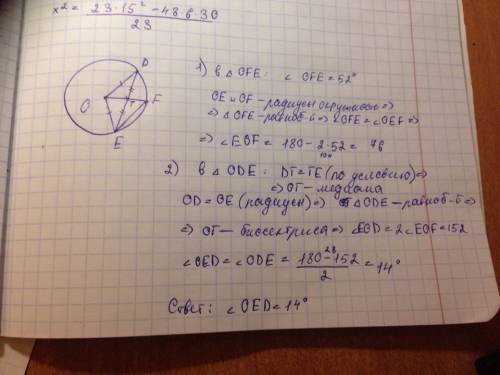 x² = 23·15² - 48·6·30
23
D
O
F
T
E
1) в △OFE: ∠OFE = 52°
OE и OF - радиусы окружности ⇒
⇒ △OFE - равноб-й ⇒ ∠OFE = ∠OEF ⇒
⇒ ∠EOF = 180 - 2·52 = 76
104
2) в △ODE: DT = TE (по условию) ⇒
⇒ OT - медиана
OD = OE (радиусы) ⇒ △ODE - равноб-й ⇒
⇒ OT - биссектриса ⇒ ∠EOD = 2∠EOF = 152
∠OED = ∠ODE = 180 - 152 = 14°
28
2
Ответ: ∠OED = 14°